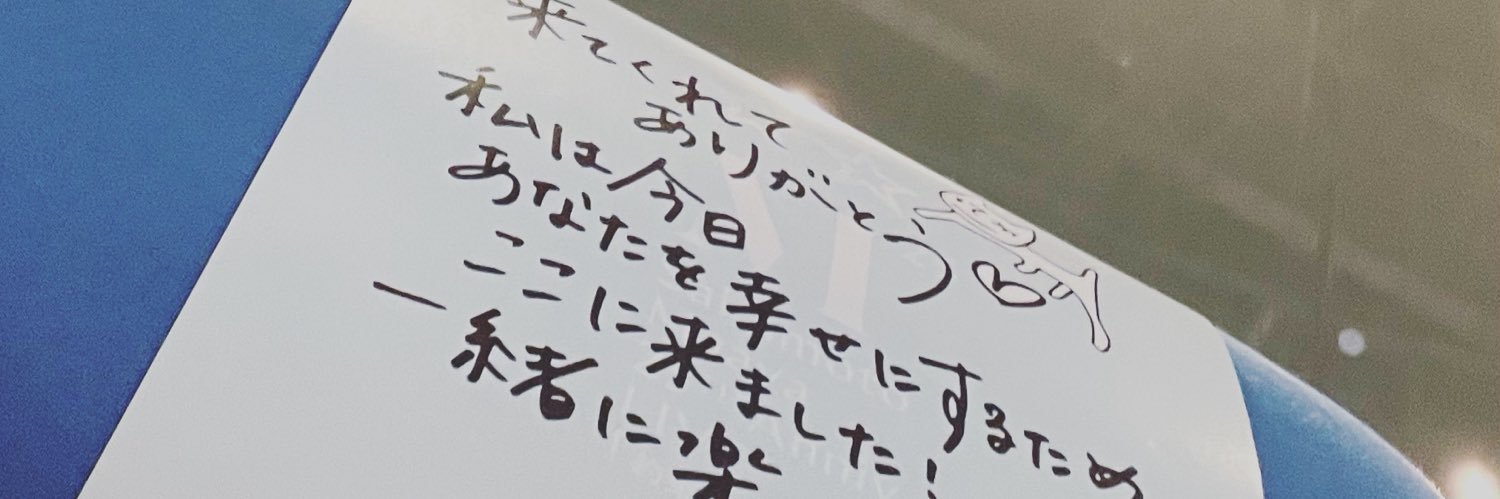 来てくれて
ありがとう
私は今日
あなたを幸せにするため
ここに来ました!
一緒に楽